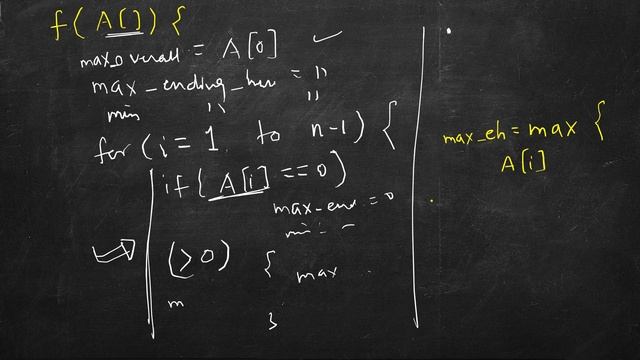 f( A[] ) {
max_overall = A[0]
max_ending_her = "
min " "
for (i = 1 to n-1) {
if ( A[i] == 0 )
max_end = 0
min = -
( ≥ 0 ) { max
m
}
max_eh = max {
A[i]